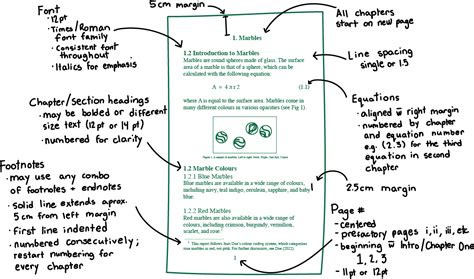 Font
• 12pt
• Times/Roman
font family
• Consistent font
throughout
• Italics for emphasis
5cm margin
All chapters
start on new page
Line spacing
single or 1.5
Chapter/section headings
• may be bolded or different
size text (12pt or 14pt)
• numbered for clarity
Equations
• aligned w̄ right margin
• numbered by chapter
and equation number
e.g. (2.3) for the third
equation in second
chapter
Footnotes
• may use any combo
of footnotes + endnotes
• solid line extends aprx.
5cm from left margin
• first line indented
• numbered consecutively;
restart numbering for
every chapter
2.5cm margin
Page #
- centered
- prefactory pages i, ii, iii, etc.
- beginning w̄ Intro/Chapter One
1, 2, 3
- 11pt or 12pt
1. Marbles
1.2 Introduction to Marbles
Marbles are round spheres made of glass. The surface
area of a marble is that of a sphere, which can be
calculated with the following equation:
A = 4πr2 (1.1)
where A is equal to the surface area. Marbles come in
many different colours in various opacities (see Fig 1).
1.2 Marble Colours
1.2.1 Blue Marbles
Blue marbles are available in a wide range of colours,
including navy, teal, indigo, cerulean, sapphire, and baby
blue.
1.2.2 Red Marbles
Red marbles are also available in a wide range of
colours, including crimson, burgundy, vermillion,
scarlet, and rose.1
1